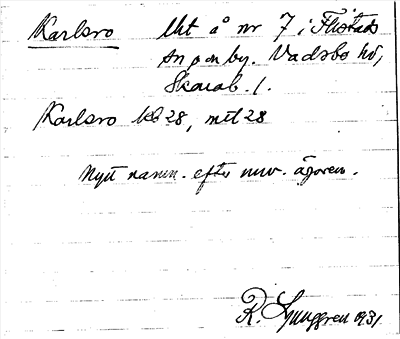 Karlsro Lht å nr 7 i Flistads
sn o by. Vadsbo hd,
Skarab. l.
Karlsro kb 28, mtl 28
Nytt namn. efter nuv. ägaren.
R. Ljunggren 1931